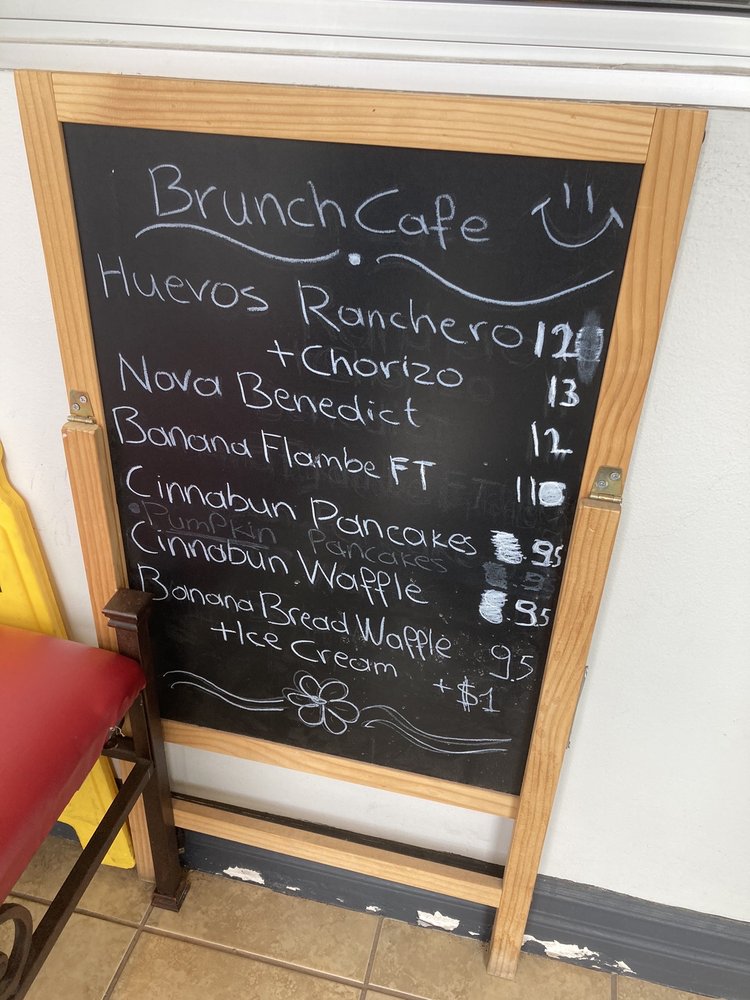 Brunch Cafe
Huevos Ranchero 12
+Chorizo 13
Nova Benedict 12
Banana Flambe FT 11
Cinnabun Pancakes 9.5
Pumpkin Pancakes
Cinnabun Waffle 9.5
Banana Bread Waffle 9.5
+Ice Cream +$1